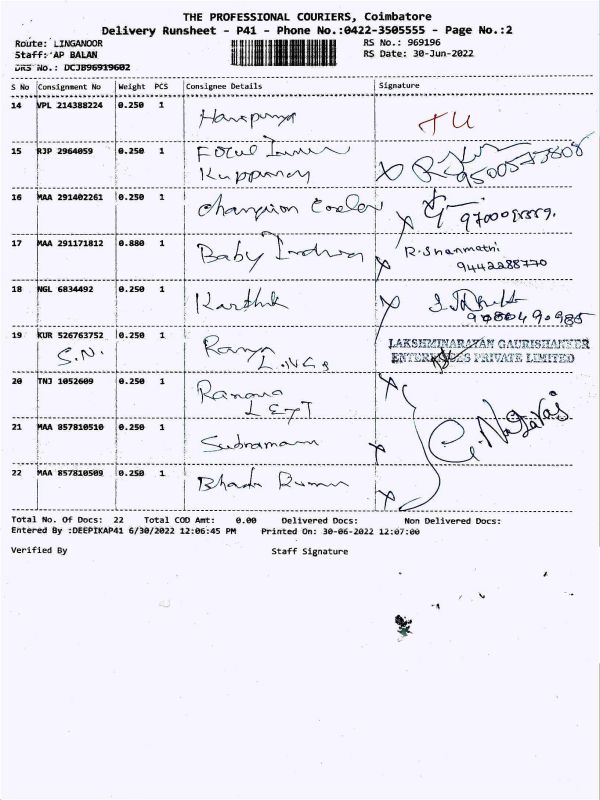 THE PROFESSIONAL COURIERS, Coimbatore
Delivery Runsheet - P41 - Phone No.:0422-3505555 - Page No.:2
Route: LINGANOOR RS No.: 969196
Staff: AP BALAN RS Date: 30-Jun-2022
DRS No.: DCJB96919602
S No Consignment No Weight PCS Consignee Details Signature
14 VPL 214388224 0.250 1
15 RJP 2964059 0.250 1
Kuppamay
16 MAA 291402261 0.250 1 Champion
17 MAA 291171812 0.880 1 Baby R. Shanmathi
9442288770
18 NGL 6834492 0.250 1 Karthik
19 KUR 526763752 0.250 1 Ramya LAKSHMINARAYAN GAURISHANKER
S.N. ENTERPRISES PRIVATE LIMITED
20 TNJ 1052609 0.250 1 Ramana
21 MAA 857810510 0.250 1 Subramani G. Nataraj
22 MAA 857810509 0.250 1
Total No. Of Docs: 22 Total COD Amt: 0.00 Delivered Docs: Non Delivered Docs:
Entered By :DEEPIKAP41 6/30/2022 12:06:45 PM Printed On: 30-06-2022 12:07:00
Verified By Staff Signature